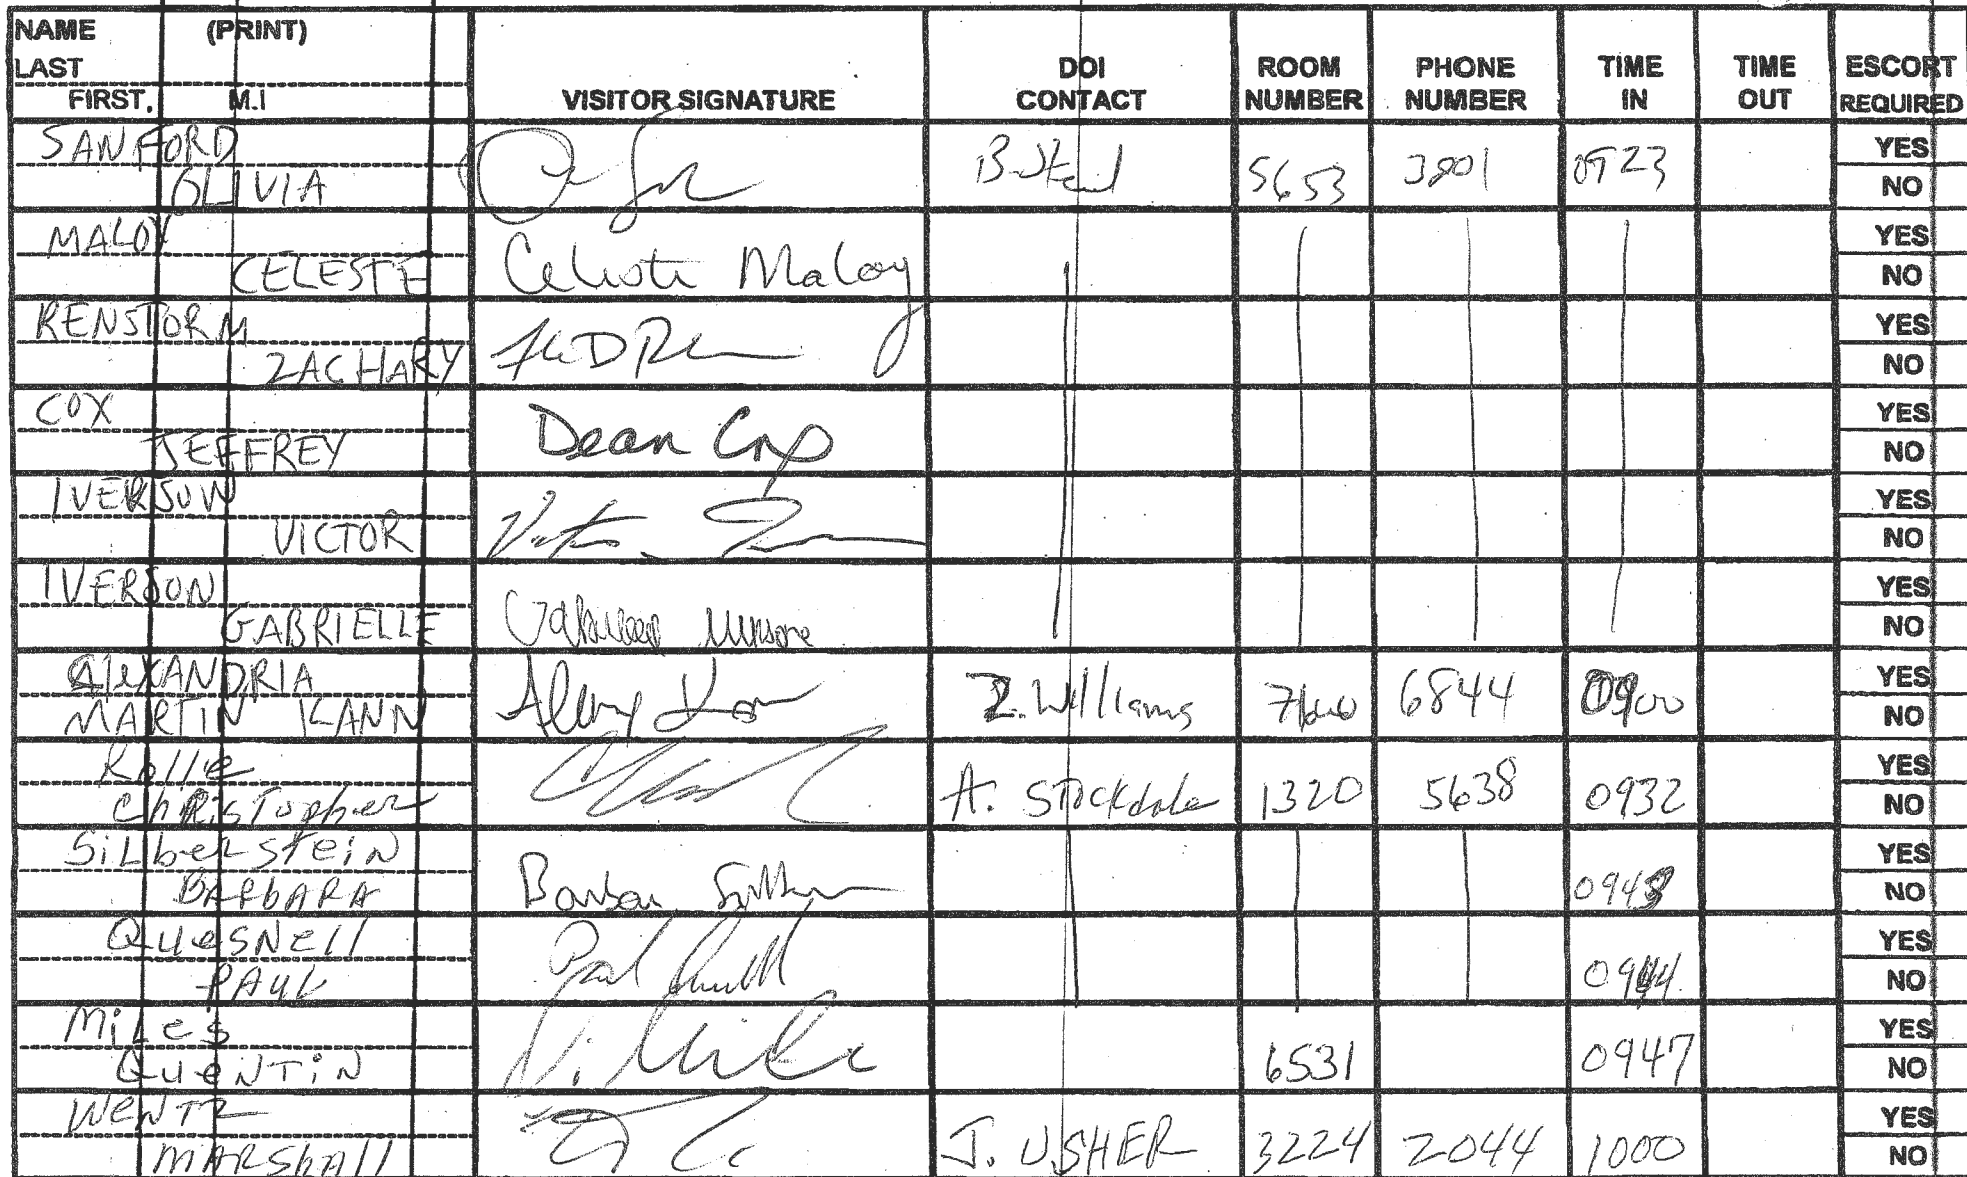 NAME (PRINT)
LAST
FIRST, M.I
VISITOR SIGNATURE
DOI CONTACT
ROOM NUMBER
PHONE NUMBER
TIME IN
TIME OUT
ESCORT REQUIRED
SANFORD
OLIVIA
5653 3801 0923
YES
NO
MALOY
CELESTE
Celeste Maloy
YES
NO
RENSTORM
ZACHARY
YES
NO
COX
JEFFREY
Dean Cox
YES
NO
IVERSON
VICTOR
YES
NO
IVERSON
GABRIELLE
YES
NO
AleXANDRIA
MARTIN KANN
Z. Williams 6844 0900
YES
NO
Rollie
ChRisTopher
A. STockdale 1320 5638 0932
YES
NO
SiLbeRsteiN
BARbARA
YES
NO
QUeSNell
PAUL
0944
YES
NO
MiLes
QueNTiN
6531 0947
YES
NO
WeNTz
MARShAll
J. USHER 3224 2044 1000
YES
NO